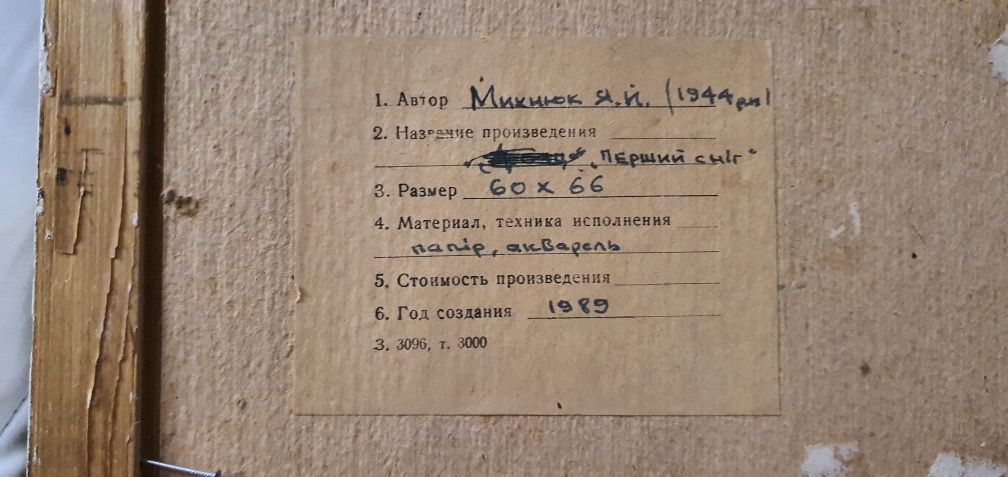 1. Автор Михнюк Я.Й. (1944 рн)
2. Название произведения
„Перший сніг"
3. Размер 60 x 66
4. Материал, техника исполнения
папір, акварель
5. Стоимость произведения
6. Год создания 1989
З. 3096, т. 3000